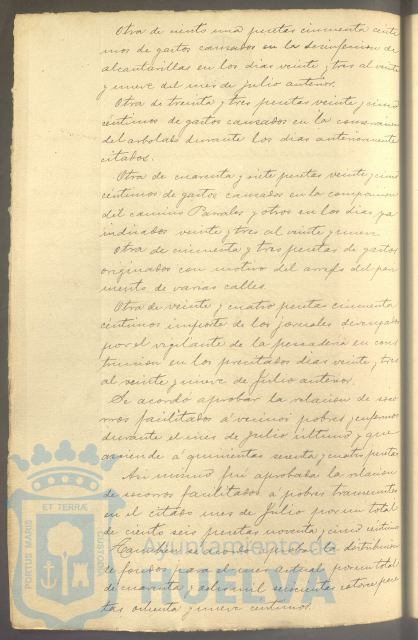 Otra de ciento una pesetas cincuenta cénti
mos de gastos causados en la desinfeccion de
alcantarillas en los dias veinte y tres al veinte
y nueve del mes de julio anterior.
Otra de treinta y tres pesetas veinte y cinco
céntimos de gastos causados en la conservacion
del arbolado durante los dias anteriormente
citados.
Otra de cuarenta y siete pesetas veinte y cinco
céntimos de gastos causados en la
del camino Parrales y otros en los dias ya
indicados veinte y tres al veinte y nueve
Otra de cincuenta y tres pesetas de gastos
originados con motivo del arreglo del pavi
mento de varias calles.
Otra de veinte y cuatro pesetas cincuenta
céntimos importe de los jornales devengados
por el vigilante de la pescaderia en cons
truccion en los precitados dias veinte y tres
al veinte y nueve de Julio anterior.
Se acordó aprobar la relacion de soco
rros facilitados á vecinos pobres y enfermos
durante el mes de Julio último y que
asciende á quinientas sesenta y cuatro pesetas
Asi mismo fué aprobada la relacion
de socorros facilitados á pobres transeuntes
en el citado mes de Julio por un total
de ciento seis pesetas noventa y cinco céntimos
Tambien se acordó aprobar la distribucion
de fondos para el mes actual por un total
de cuarenta y dos mil seiscientas catorce pese
tas ochenta y nueve céntimos.
PORTUS MARIS
ET TERRÆ
CUSTODIA
Ayuntamiento de
HUELVA